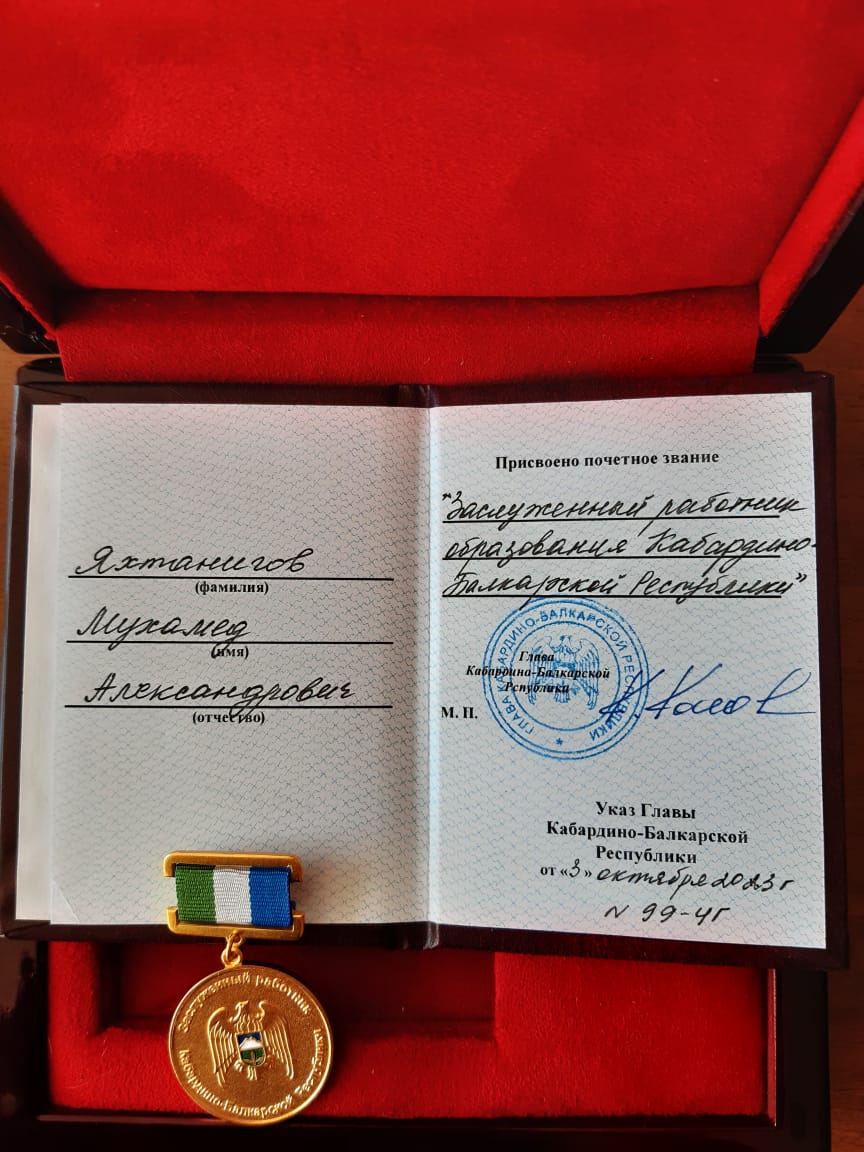 Яхтанигов
(фамилия)
Мухамед
(имя)
Александрович
(отчество)
Присвоено почетное звание
"Заслуженный работник
образования Кабардино-
Балкарской Республики"
Глава
Кабардина-Балкарской
Рспублики
М. П.
ГЛАВА КАБАРДИНО-БАЛКАРСКОЙ РЕСПУБЛИКИ
Указ Главы
Кабардино-Балкарской
Республики
от «3» октября 2023 г
N 99-УГ
Заслуженный работник
Кабардино-Балкарской Республики